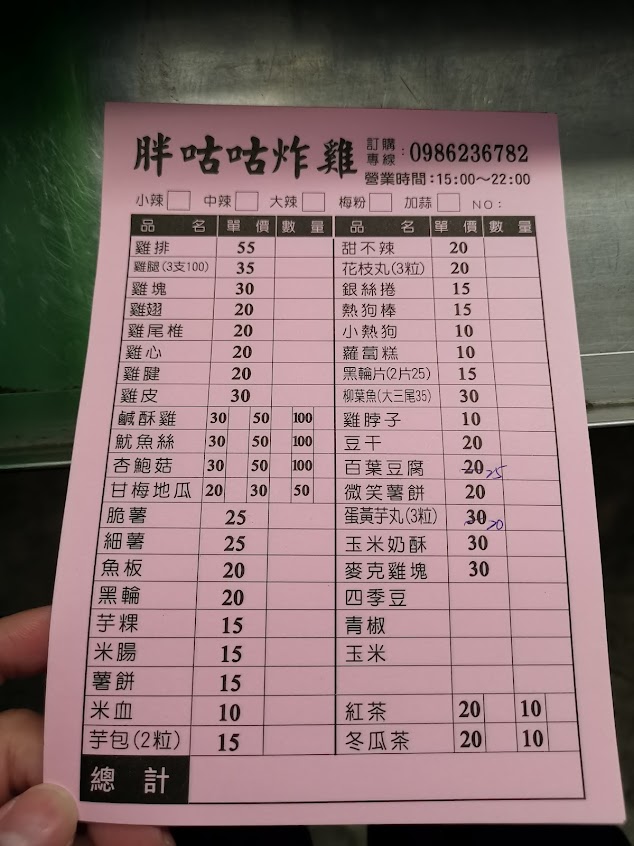 胖咕咕炸雞 訂購專線:0986236782
營業時間:15:00~22:00
小辣 中辣 大辣 梅粉 加蒜 NO:
品名 單價 數量 品名 單價 數量
雞排 55 甜不辣 20
雞腿(3支100) 35 花枝丸(3粒) 20
雞塊 30 銀絲捲 15
雞翅 20 熱狗棒 15
雞尾椎 20 小熱狗 10
雞心 20 蘿蔔糕 10
雞腱 20 黑輪片(2片25) 15
雞皮 30 柳葉魚(大三尾35) 30
鹹酥雞 30 50 100 雞脖子 10
魷魚絲 30 50 100 豆干 20
杏鮑菇 30 50 100 百葉豆腐 20 25
甘梅地瓜 20 30 50 微笑薯餅 20
脆薯 25 蛋黃芋丸(3粒) 30 20
細薯 25 玉米奶酥 30
魚板 20 麥克雞塊 30
黑輪 20 四季豆
芋粿 15 青椒
米腸 15 玉米
薯餅 15
米血 10 紅茶 20 10
芋包(2粒) 15 冬瓜茶 20 10
總計